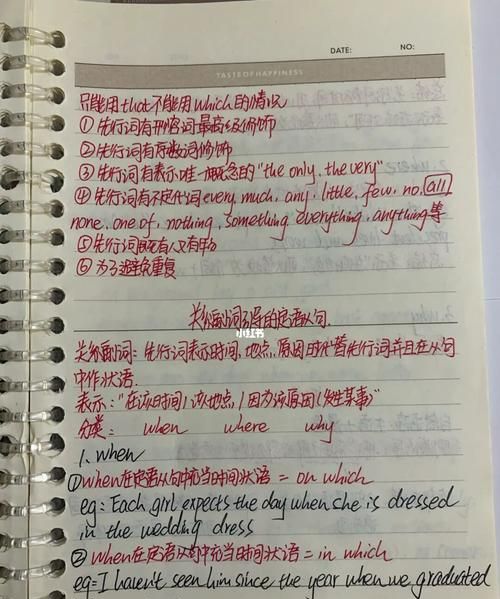 DATE: NO:
TASTE OF HAPPINESS
只能用that不能用which的情况
① 先行词有形容词最高级修饰
② 先行词有序数词修饰
③ 先行词有表示唯一概念的"the only, the very"
④ 先行词有不定代词 every, much, any, little, few, no, all
none, one of, nothing, something, everything, anything等
⑤ 先行词既有人又有物
⑥ 为了避免重复
关系副词引导的定语从句.
小红书
关系副词: 先行词表示时间,地点,原因时代替先行词并且在从句
中作状语.
表示: "在该时间/该地点/因为该原因(发生某事)"
分类: when where why
1. when
①when在定语从句中充当时间状语 = on which
eg: Each girl expects the day when she is dressed
in the wedding dress
② when在定语从句中充当时间状语 = in which
eg: I haven't seen him since the year when we graduated